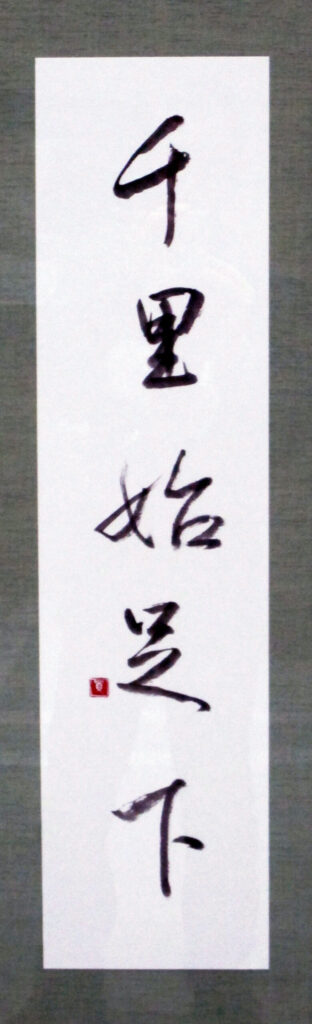 千里始足下